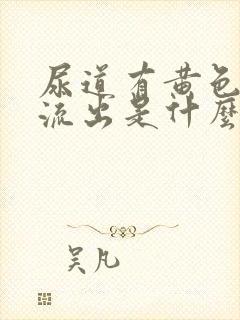 尿道有黄色
流出是什麼
吴凡